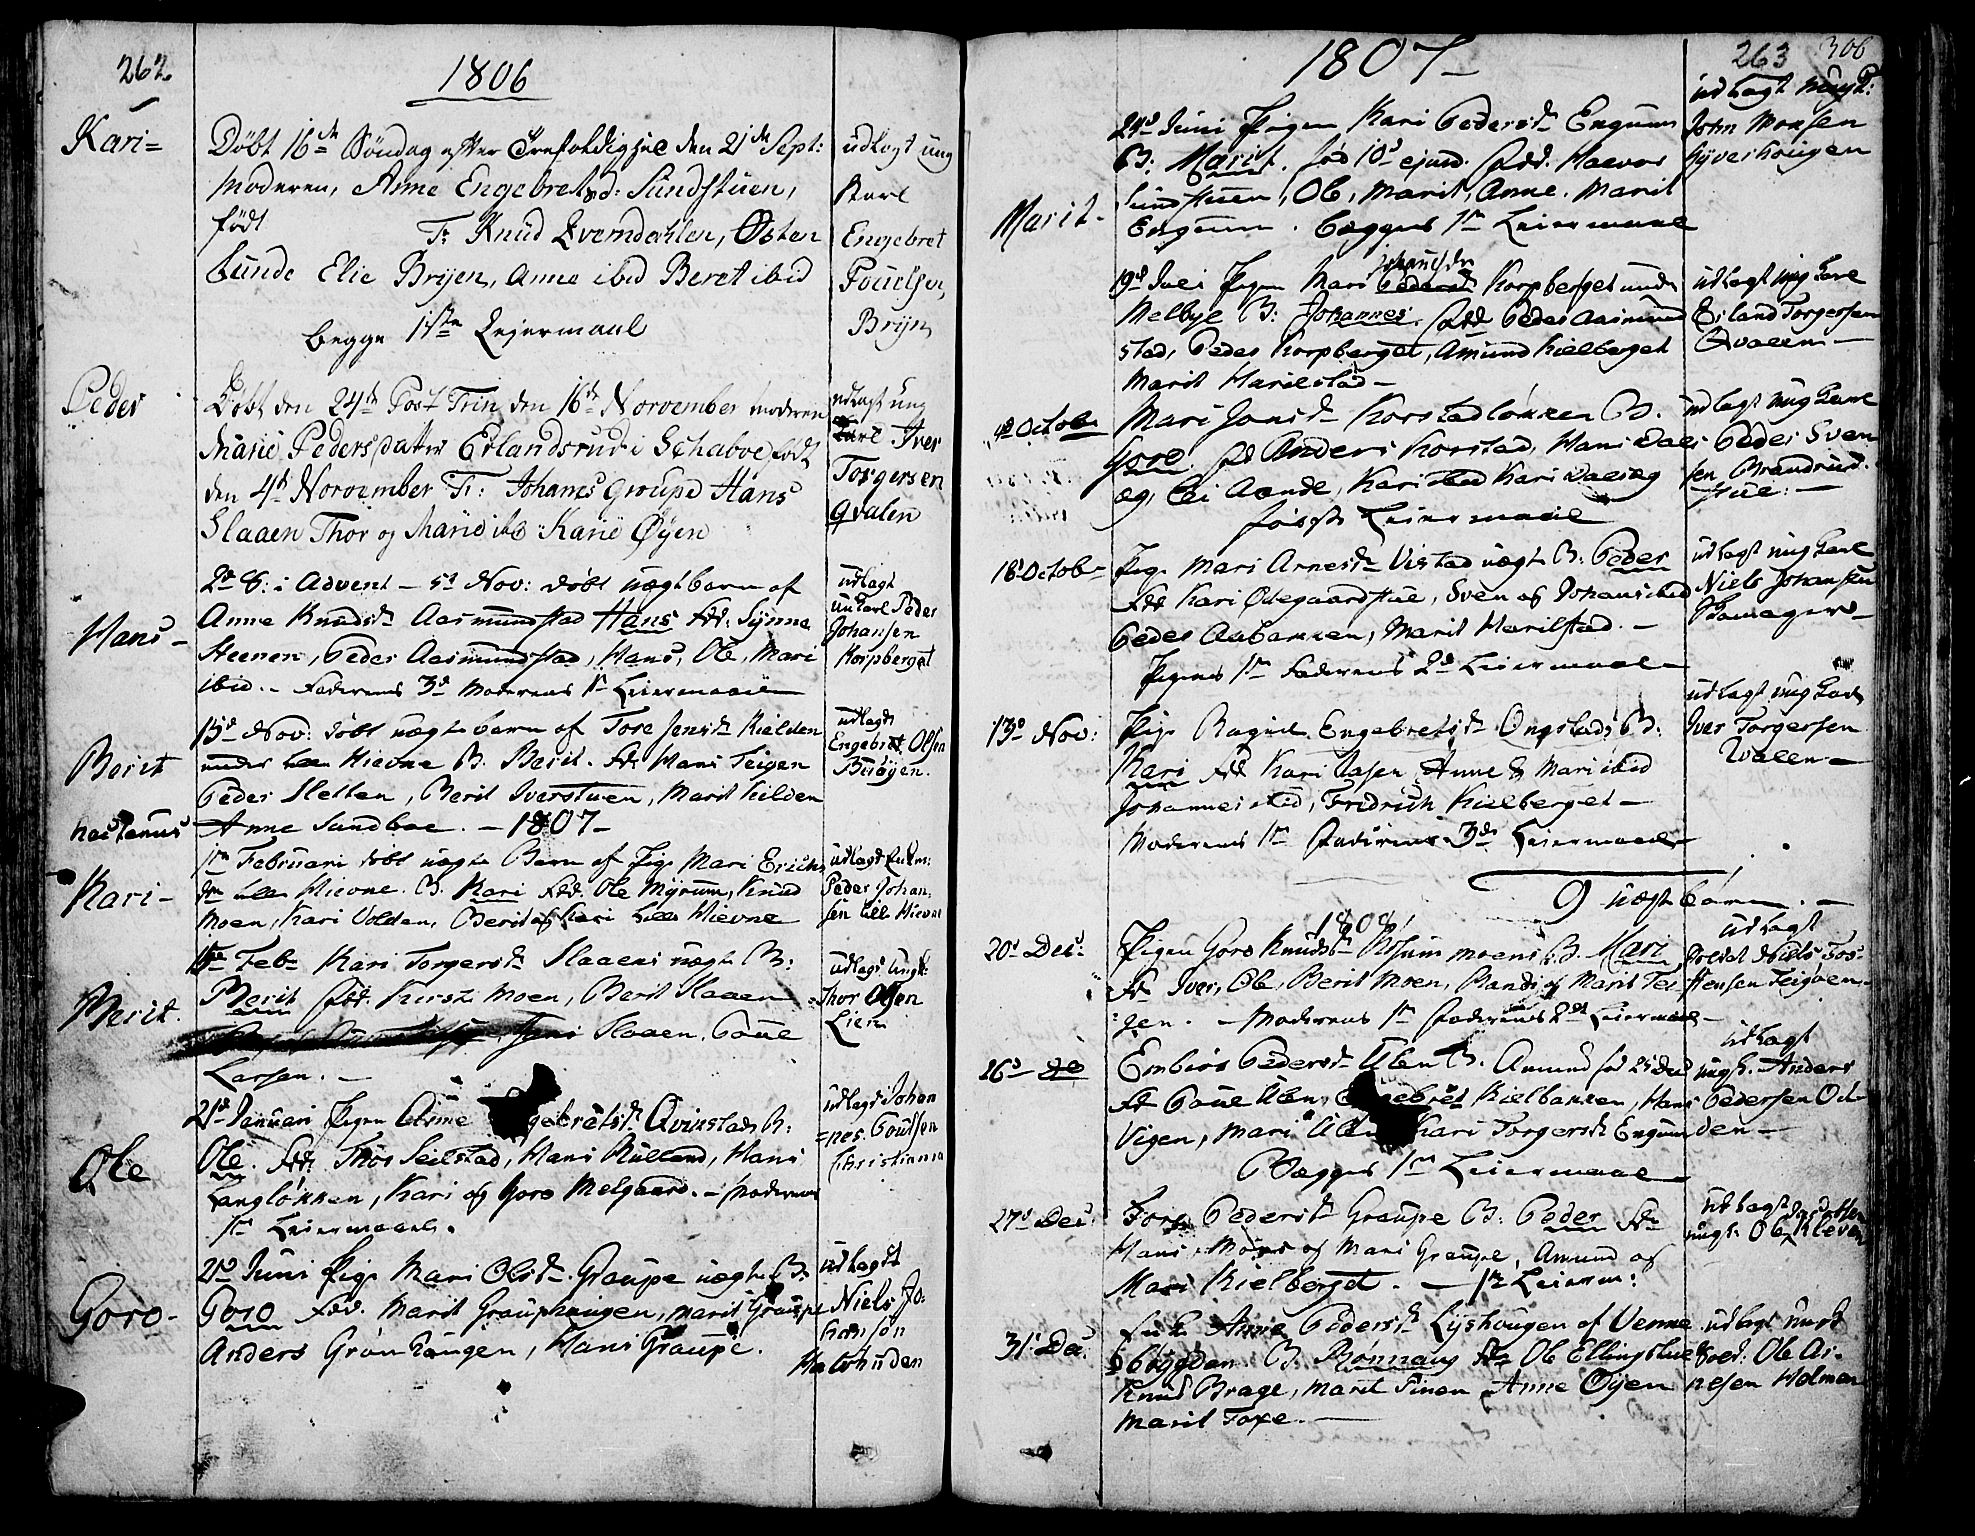 262
1806
Kari=
Døbt 16de Søndag efter Trefoldighed den 21de Sept:
Moderen, Anne Engebretsd: Sundstuen,
født F: Knud Qverndahlen, Østen
Lunde Elie Brÿen, Anne ibid Beret ibid
begge 1ste Lejermaal
udlagt ung
Karl
Engebret
Poulsen
Brÿn
Peder
Døbt den 24de Post Trin den 16de November moderen
Marie Pedersdatter Erlandsrud i Schaboe født
den 4de November F: Johanes Groupe Hans
Slaaen Thor og Marie ibd Karie Øyen
udlagt ung
Karl Iver
Torgersen
Qvalen
Hans-
2d S: i Advent - Nov: døbt uægt barn af
Anne Knudsd. Aasmundstad Hans Fdd: Synne
Steenen, Peder Aasmundstad, Hans, Ole, Mari
ibid. - Faderens 3d Moderens 1ste Leiermaal
udlagt
unKarl Peder
Johansen
Korpberget
Berit
15d Nov: døbt uægte barn af Tore Jensd. Kielden
under Lille Hievne B. Berit. Fdd: Hans Teigen
Peder Sletten, Berit Iverstuen, Marit Kilden
Anne Sundboe. - 1807 -
udlagt
Engebret Olsen
Byrøyen.
Kari-
1ste Februari døbt uægte Barn af Pige Mari Erichs
dr Lille Hievne. B. Kari Fdd: Ole Myrum, Knud
Moen, Kari Volden, Berit og Kari Lille Hievne
udlagt Enkm:
Peder Johan-
sen Lill Hievne
Berit.
Feb: Kari Torgersd. Slaaens uægt B:
Berit Fdd: Kersti Moen, Berit Slaaen
Slaaen. Poue
Larsen. -
udlagt ungk:
Thor Olsen
Lien
Ole
21d Januari Pigen Anne gebretsd. Qvinstads B:
Ole. Fdd: Thor Seilstad, Hans Rulland, Hans
Langløkken, Kari og Goro Melgaard. - Moderens
1ste Leiermaal.
udlagt Johan
=nes. Poulsen
Christiania
Goro-
21d Juni Pige Mari Olsd. Graupe uægte B:
Goro Fdd. Marit Grauphaugen, Marit Graupe
Anders Grønhaugen, Hans Graupe.
udlagt
Niels Jo:
hansøn
Hatvhuden
1807-
263 306
Marit-
24d Juni Pigen Kari Pedersd. Engum
B: Marit. fød 10d ejusd. Fdd. Haavor
Sundstuen, Ole, Marit, Anne. Marit
Engum. Begges 1ste Leiermaal
udlagt ungk:
John Monsen
Gyverhougen
19d Juli Pigen Mari Pedersd. Johansdr Korpberget under
Melbye B: Johannes. Fdd Peder Aasmund
stad, Peder Korpberget, Amund Kielberget
Marit Harilstad -
udlagt ung Karl
Erland Torgersen
Qvalen -
4d October
Mari Jonsd. Korstadløkken B.
Goro. fd Anders Korstad, Hans Dal
æg, Ole Aande, Kari ibid Kari Dalsæg
første Leiermaal
udlagt ung Karl
Peder Sven
sen Brandrud
stue: -
18d October
Pige Mari Arnesd. Vistad uægt B: Peder
Fdd Kari Ødegaardstue, Sven og Johans ibid
Peder Aabakken, Marit Harilstad. -
Pigens 1ste Faderens 2d Leiermaal
udlagt ung Karl
Niels Johansen
13d Nov:
Pige Ragnil Engebretsd. Ongstads B:
Kari Fdd Kari Jasen, Anne & Mari ibid
Johannes ibid, Fredrich Kielberget -
Moderens 1ste Faderens 3d Leiermaal
udlagt ung Karl
Iver Torgersen
Valen -
9 uægte børn. -
1808
20d Dec:
Pigen Goro Knudsd. moens B. Mari
Fd Iver, Ole, Berit Moen, Randi og Marit Tei
gen. - Moderens 1ste Faderens 2det Leiermaal -
udlagt
Soldat Niels Tos-
tensen Teigen -
26d do
Embiør Pedersd. Ulen B. Amund fød 25 ded
Fd Poue Ulen, Engebret Kielbakken, Hans
Vigen, Mari Ulen Kari Torgersd. Engum
Begges 1ste Leiermaal
udlagt
ungk. Anders
Pedersen Od-
den -
27d Dec:
Tore Pedersd. Graupe B: Peder Fd
Hans, Mons og Mari Graupe, Amund og
Mari Kielberget. - 1ste Leierm:
udlagt
ungk. Ole Kleven
31d Dec.
Enke Anne Pedersd. Lyshougen af Venne
bøygden B. Rønnaug Fd Ole Ellingstue
Knud Brage, Marit Tinen, Anne Øyen
Marit Toxe. -
udlagt
Sold: Ole Ar-
nesen Holmen